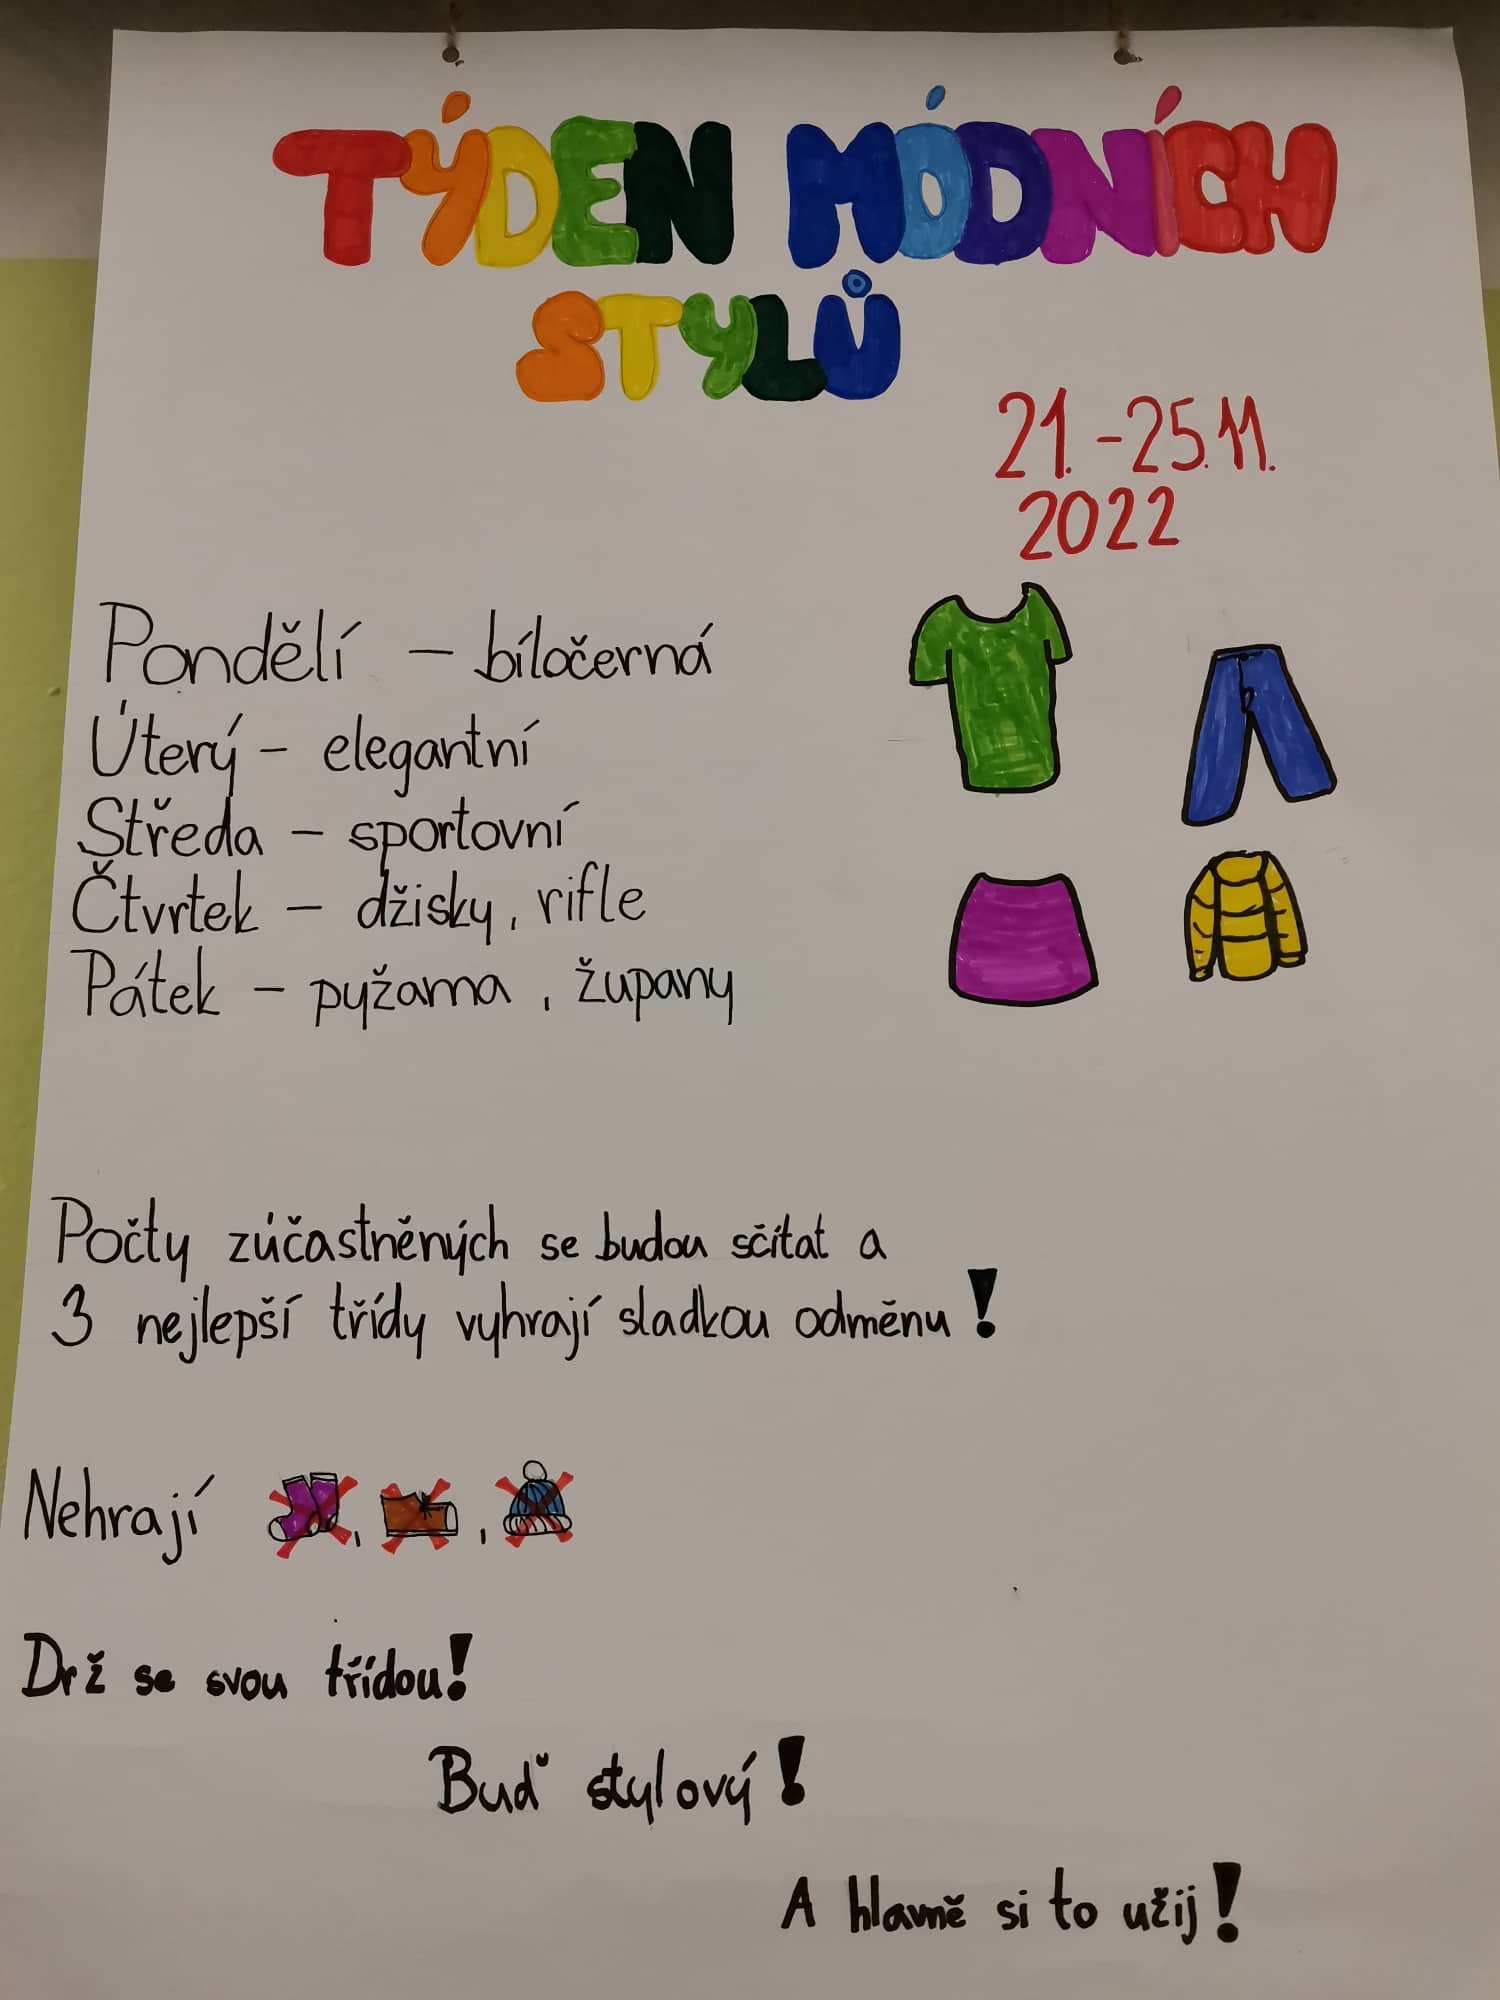 TÝDEN MÓDNÍCH
STYLŮ
21.-25.11.
2022
Pondělí - bíločerná
Úterý - elegantní
Středa - sportovní
Čtvrtek - džisky, rifle
Pátek - pyžama, župany
Počty zúčastněných se budou sčítat a
3 nejlepší třídy vyhrají sladkou odměnu!
Nehrají , ,
Drž se svou třídou!
Buď stylový!
A hlavně si to užij!